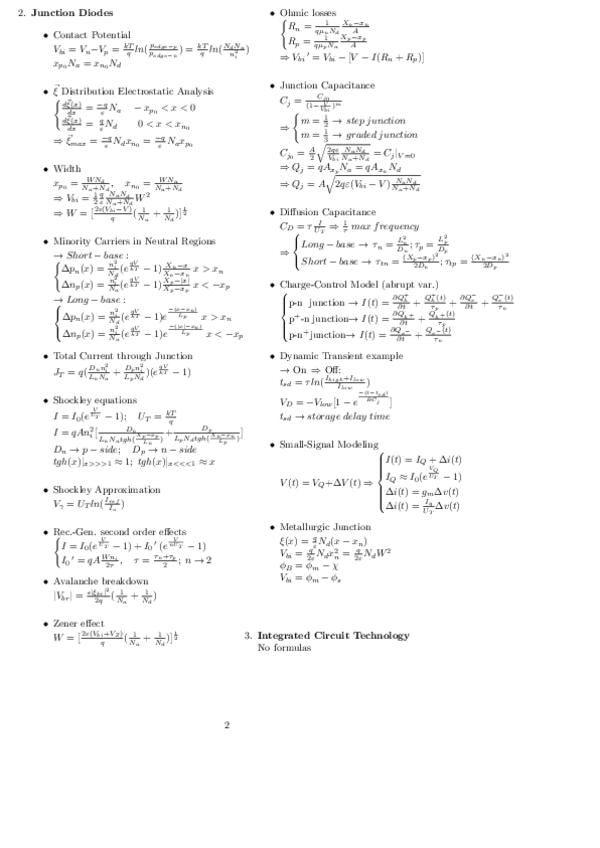 2. Junction Diodes
• Contact Potential
V_bi = V_n − V_p = kT/q ln(p_edge−p / p_edge−n) = kT/q ln(N_d N_a / n_i^2)
x_p0 N_a = x_n0 N_d
• ξ⃗ Distribution Electrostatic Analysis
{ dξ⃗(x)/dx = −q/ε N_a   − x_p0 < x < 0
dξ⃗(x)/dx = q/ε N_d   0 < x < x_n0
⇒ ξ⃗_max = −q/ε N_d x_n0 = −q/ε N_a x_p0
• Width
x_p0 = W N_d / (N_a+N_d),   x_n0 = W N_a / (N_a+N_d)
⇒ V_bi = 1/2 q/ε N_a N_d / (N_a+N_d) W^2
⇒ W = [2ε(V_bi−V)/q (1/N_a + 1/N_d)]^1/2
• Minority Carriers in Neutral Regions
→ Short − base :
{ Δp_n(x) = n_i^2/N_d (e^(qV/kT) − 1) (X_n−x)/(X_n−x_n) x > x_n
Δn_p(x) = n_i^2/N_a (e^(qV/kT) − 1) (X_p−|x|)/(X_p−x_p) x < −x_p
→ Long − base :
{ Δp_n(x) = n_i^2/N_d (e^(qV/kT) − 1)e^(−(x−x_n)/L_p)   x > x_n
Δn_p(x) = n_i^2/N_a (e^(qV/kT) − 1)e   x < −x_p
• Total Current through Junction
J_T = q(D_n n_i^2 / L_n N_a + D_p n_i^2 / L_p N_d)(e^(qV/kT) − 1)
• Shockley equations
I = I_0(e^(V/U_T) − 1);   U_T = kT/q
I = qAn_i^2[ / L_n N_a tgh( ) + D_p / L_p N_d tgh( )]
D_n → p − side;   D_p → n − side
tgh(x)|_x>>>1 ≈ 1; tgh(x)|_x<<<1 ≈ x
• Shockley Approximation
V_γ = U_T ln( )
• Rec.-Gen. second order effects
{ I = I_0(e^(V/U_T) − 1) + I_0′(e^(V/nU_T) − 1)
I_0′ = qA W n_i / 2τ,   τ = (τ_n+τ_p)/2; n → 2
• Avalanche breakdown
|V_br| = ε|ξ_br|^2 / 2q (1/N_a + 1/N_d)
• Zener effect
W = [2ε(V_bi+V_Z)/q (1/N_a + 1/N_d)]^1/2
• Ohmic losses
{ R_n = 1/(qμ_n N_d) (X_n−x_n)/A
R_p = 1/(qμ_p N_a) (X_p−x_p)/A
⇒ V_bi′ = V_bi − [V − I(R_n + R_p)]
• Junction Capacitance
C_j = C_j0 / (1−V/V_bi)^m
⇒ { m = 1/2 → step junction
m = 1/3 → graded junction
C_j0 = A/2 √(2qε/V_bi N_a N_d/(N_a+N_d)) = C_j|_V=0
⇒ Q_j = qAx_p N_a = qAx_n N_d
⇒ Q_j = A√(2qε(V_bi − V) N_a N_d/(N_a+N_d))
• Diffusion Capacitance
C_D = τ I/U_T ⇒ 1/τ max frequency
⇒ { Long − base → τ_n = L_n^2/D_n; τ_p = L_p^2/D_p
Short − base → τ_tn = (X_p−x_p)^2/2D_n; τ_tp = (X_n−x_n)^2/2D_p
• Charge-Control Model (abrupt var.)
{ p-n junction → I(t) =
p⁺-n junction→ I(t) =
p-n⁺junction→ I(t) =
• Dynamic Transient example
→ On ⇒ Off:
t_sd = τln((I_high+I_low)/I_low)
V_D = −V_low[1 − e ]
t_sd → storage delay time
• Small-Signal Modeling
V(t) = V_Q+ΔV(t) ⇒ { I(t) = I_Q + Δi(t)
I_Q ≈ I_0(e^(V_Q/U_T) − 1)
Δi(t) = g_m Δv(t)
Δi(t) = I_Q/U_T Δv(t)
• Metallurgic Junction
ξ(x) = q/ε N_d(x − x_n)
V_bi = q/2ε N_d x_n^2 = q/2ε N_d W^2
ϕ_B = ϕ_m − χ
V_bi = ϕ_m − ϕ_s
3. Integrated Circuit Technology
No formulas
2